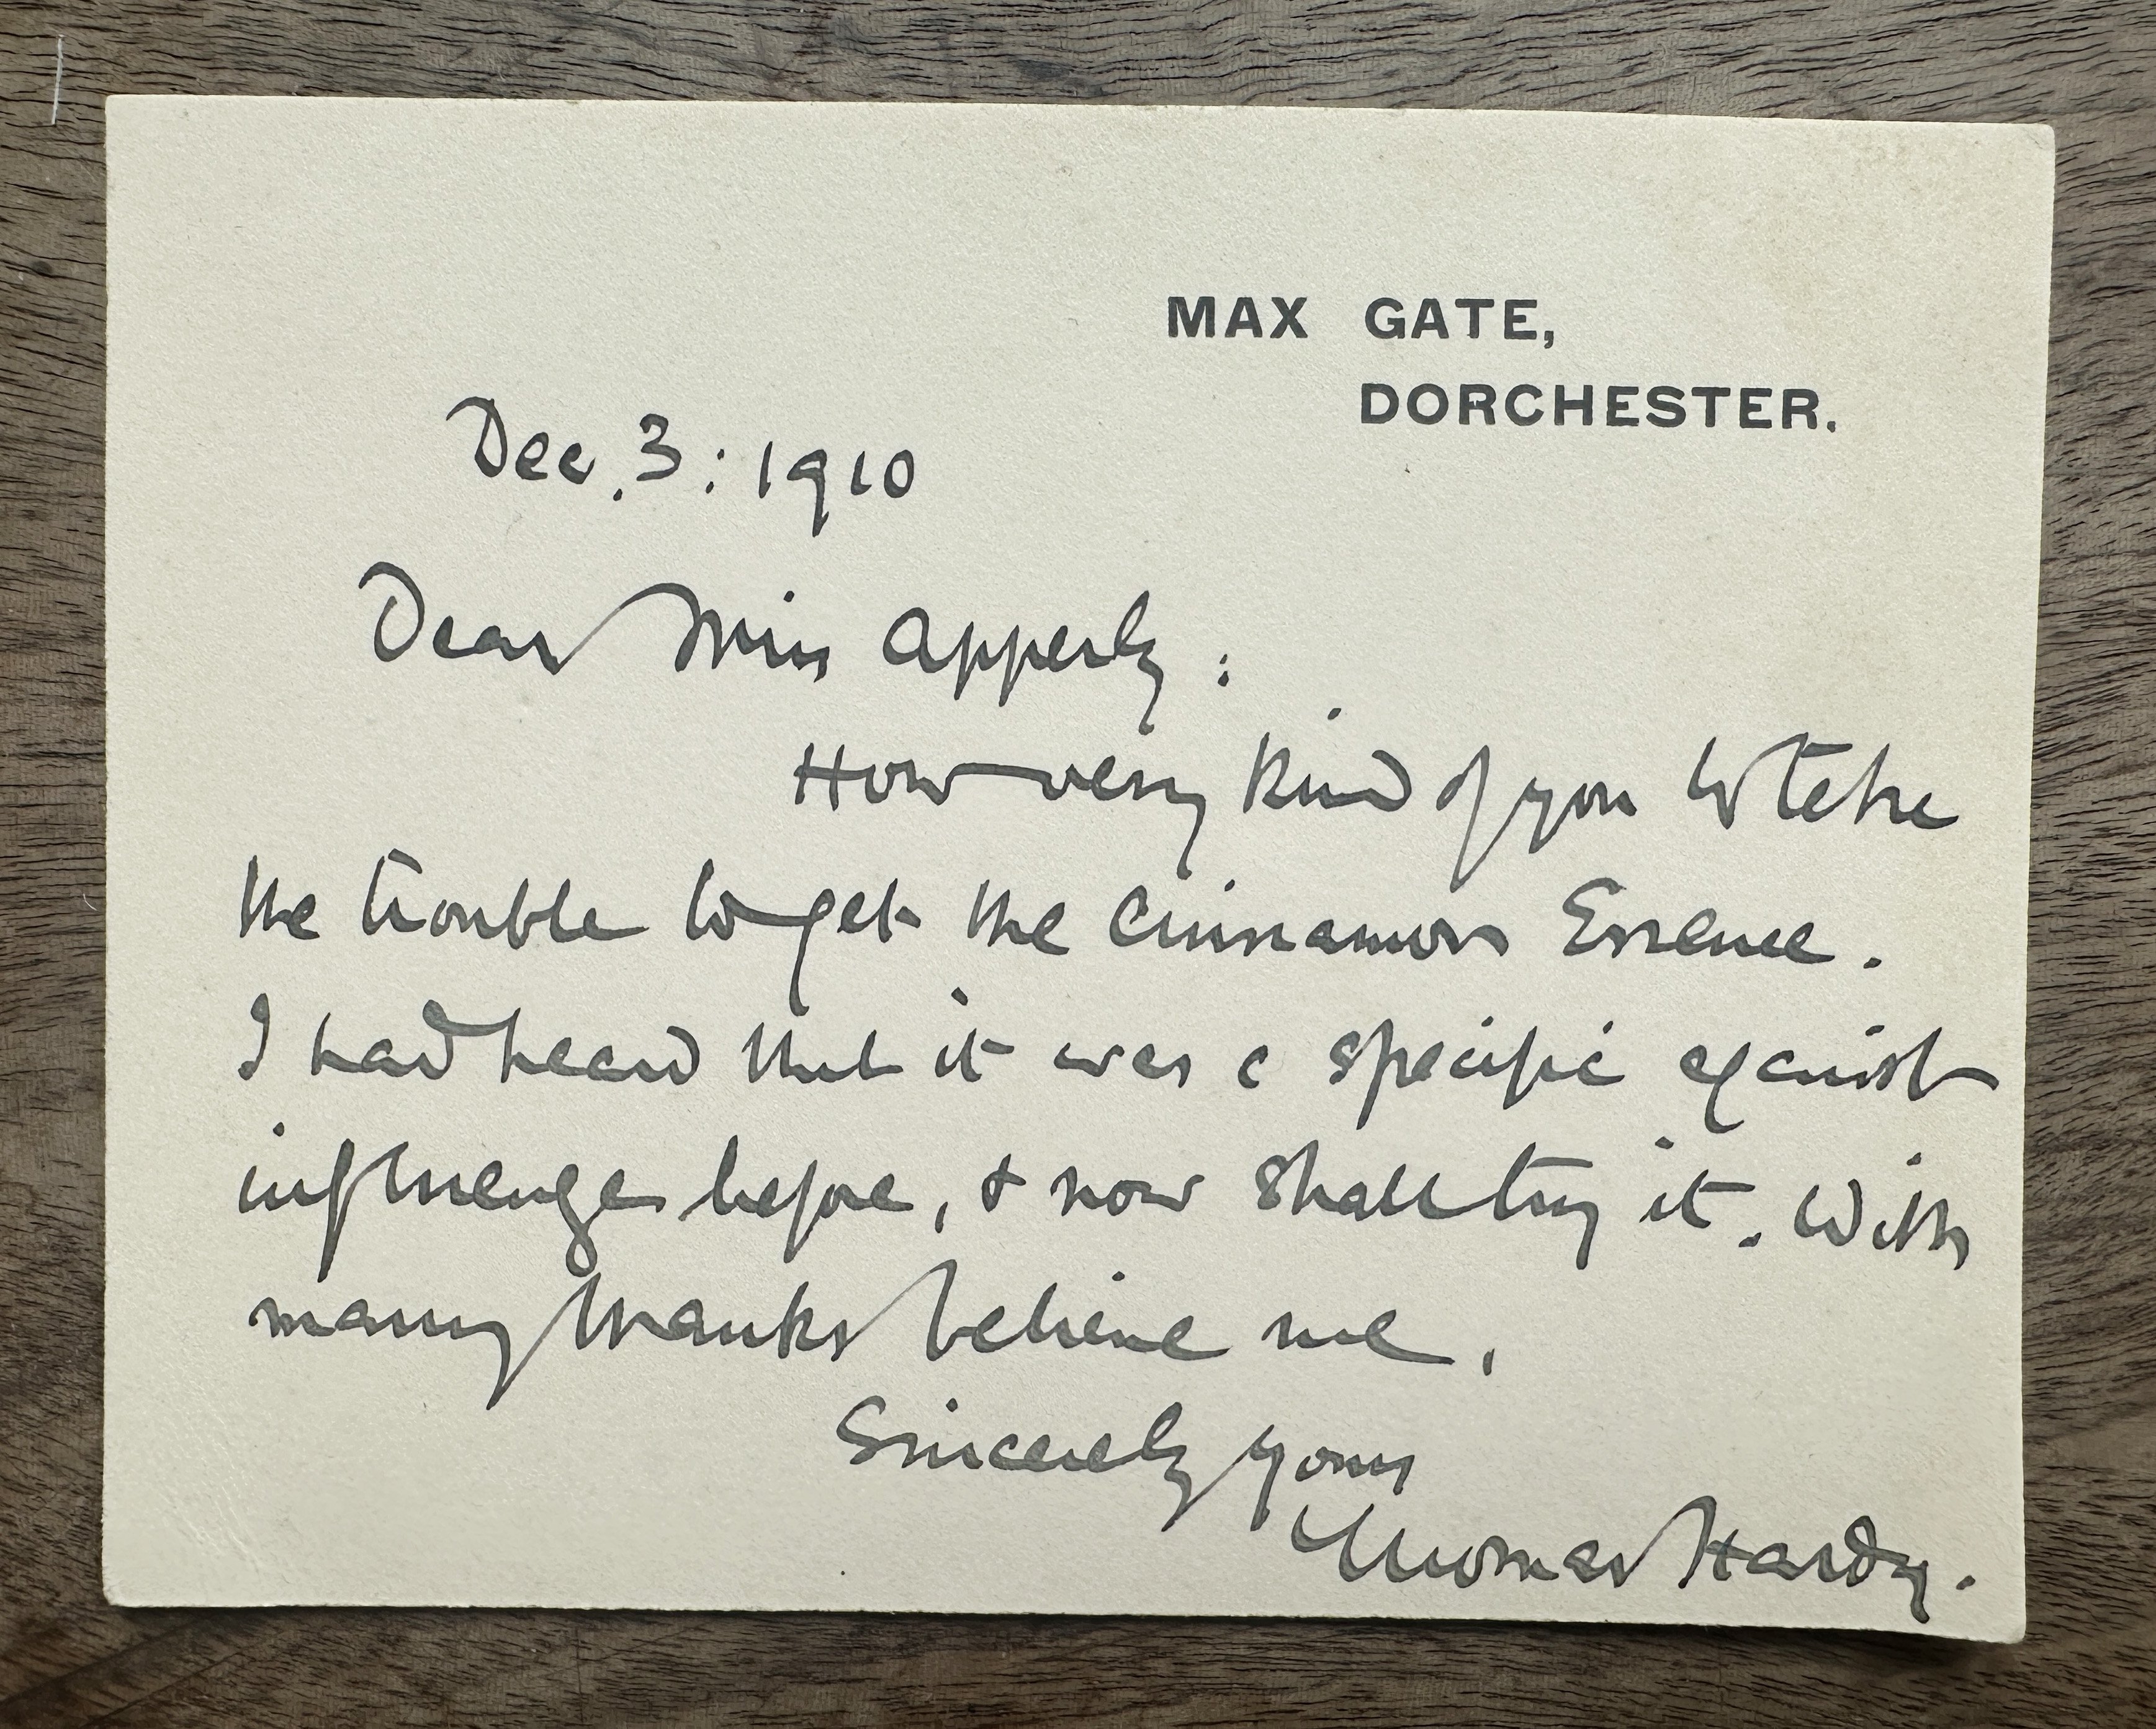 MAX GATE,
DORCHESTER.
Dec. 3: 1910
Dear Miss Apperly:
How very kind of you to take
the trouble to get the Cinnamon Essence.
I had heard that it was a specific against
influenza before, & now shall try it. With
many thanks believe me,
Sincerely yours
Thomas Hardy.